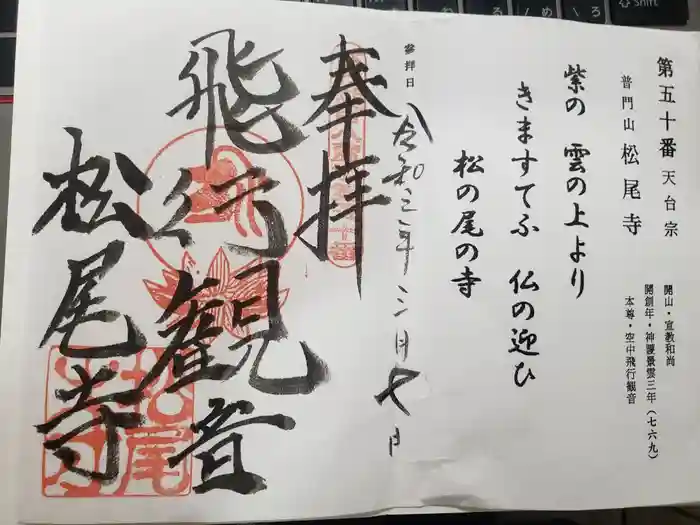 第五十番 天台宗
普門山 松尾寺
開山・宣教和尚
開創年・神護景雲三年（七六九）
本尊・空中飛行観音
紫の 雲の上より
きますてふ 仏の迎ひ
松の尾の寺
参拝日 令和三年三月七日
奉拝
飛行観音
松尾寺
松尾寺
Shift
め
ろ